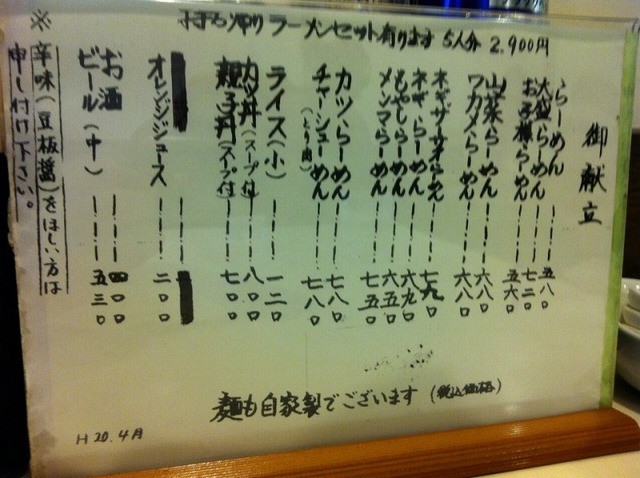 お持ち帰りラーメンセット有ります 5人分 2,900円
御献立
らーめん 五八〇
大盛らーめん 七二〇
お子様らーめん 五六〇
山菜らーめん 六八〇
ワカメらーめん 六八〇
ネギザーサイらーめん 七九〇
ネギらーめん 六九〇
もやしらーめん 六五〇
メンマらーめん 七五〇
カツらーめん 七八〇
チャーシューめん 七八〇
(とり肉)
ライス(小) 一二〇
カツ丼(スープ付) 八〇〇
親子丼(スープ付) 七〇〇
オレンジジュース 二〇〇
お酒 四〇〇
ビール(中) 五三〇
※辛味(豆板醤)をほしい方は
申し付け下さい。
麺も自家製でございます (税込価格)
H20.4月